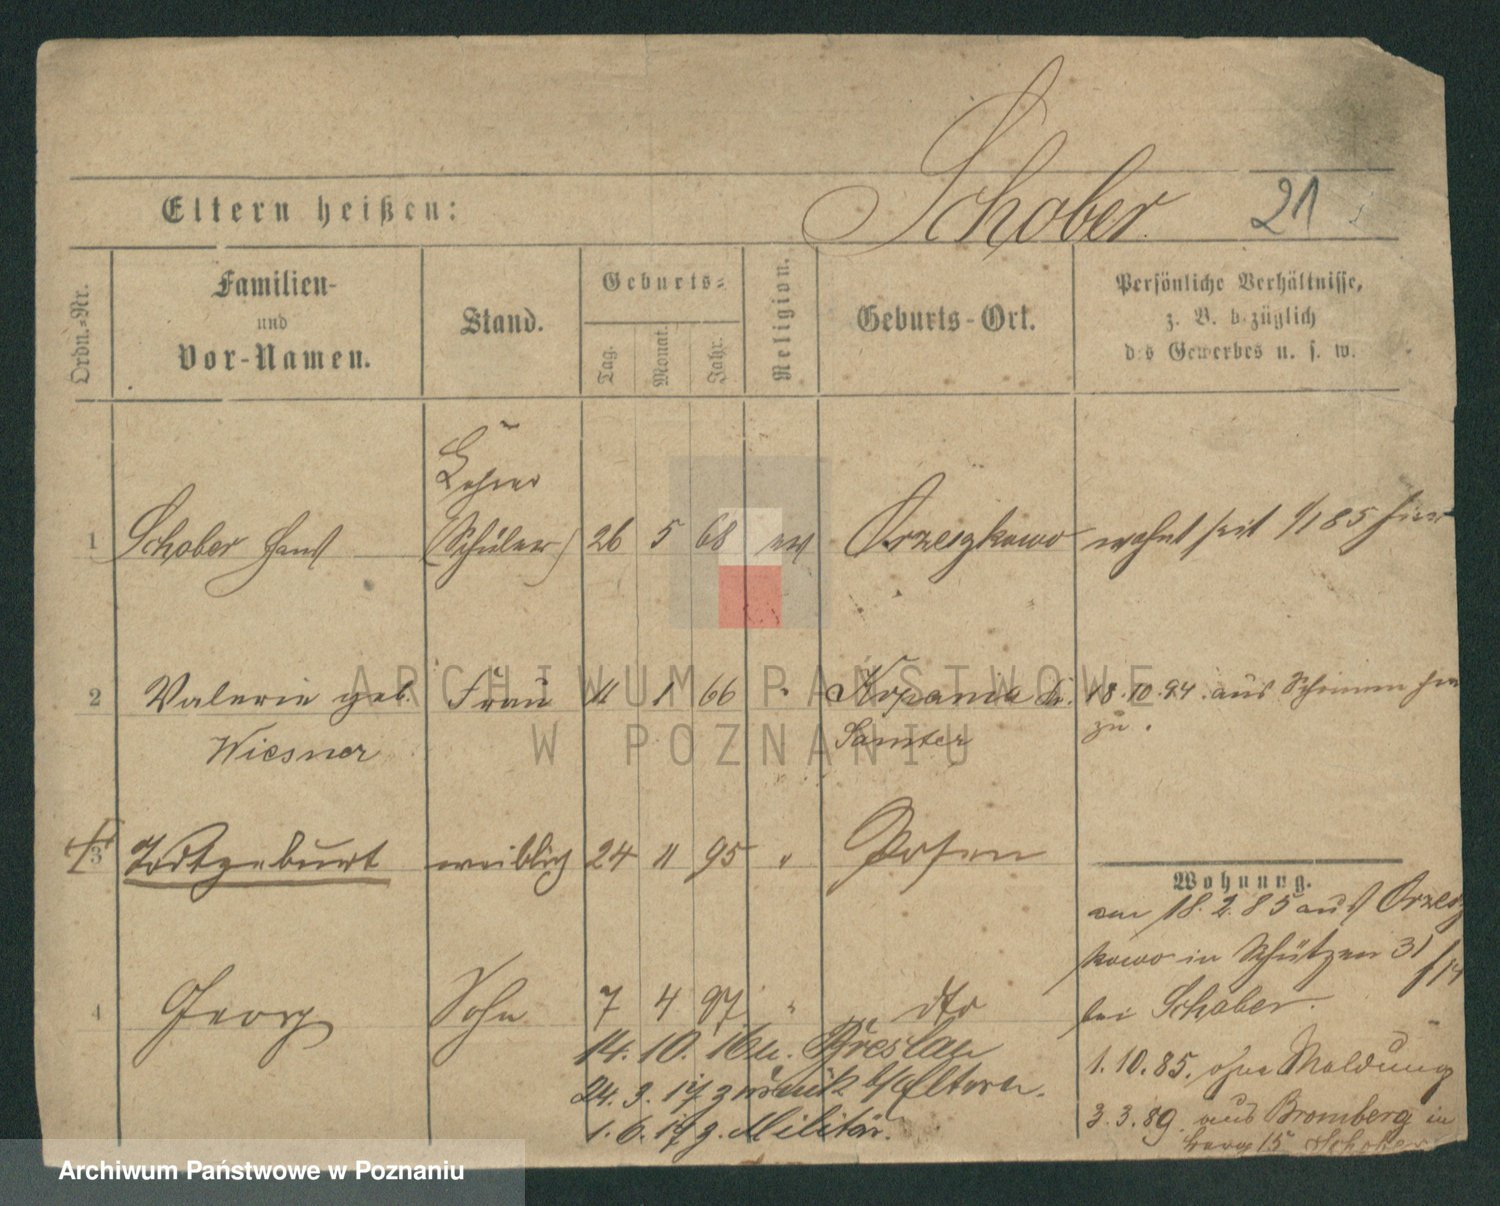 Schober 21
Eltern heißen:
Ordn.-Nr.
Familien-
und
Vor-Namen.
Stand.
Geburts-
Tag.
Monat.
Jahr.
Religion.
Geburts-Ort.
Persönliche Verhältnisse,
z. B. bezüglich
des Gewerbes u. s. w.
Lehrer
1 Schober Hans (Schüler) 26 5 68 ev Orzeszkowo wohnt seit 1/1 85 hier
2 Valerie geb. Frau 11 1 66 " Kopanie Kr. 18.10.94. aus Schrimm her
Wiesner Samter zu.
3 Todtgeburt weiblich 24 11 95 " Posen
Wohnung.
am 18.2.85 aus Orzesz
kowo in Schützen 31
4 Georg Sohn 7 4 97 " dto bei Schober.
14. 10. 16 n. Breslau
1.10.85. ohne Meldung
24. 3. 17 zurück b/Eltern.
3.3.89. aus Bromberg in
1. 6. 17 z. Militär.
berg 15 Schober
ARCHIWUM PAŃSTWOWE
W POZNANIU
Archiwum Państwowe w Poznaniu